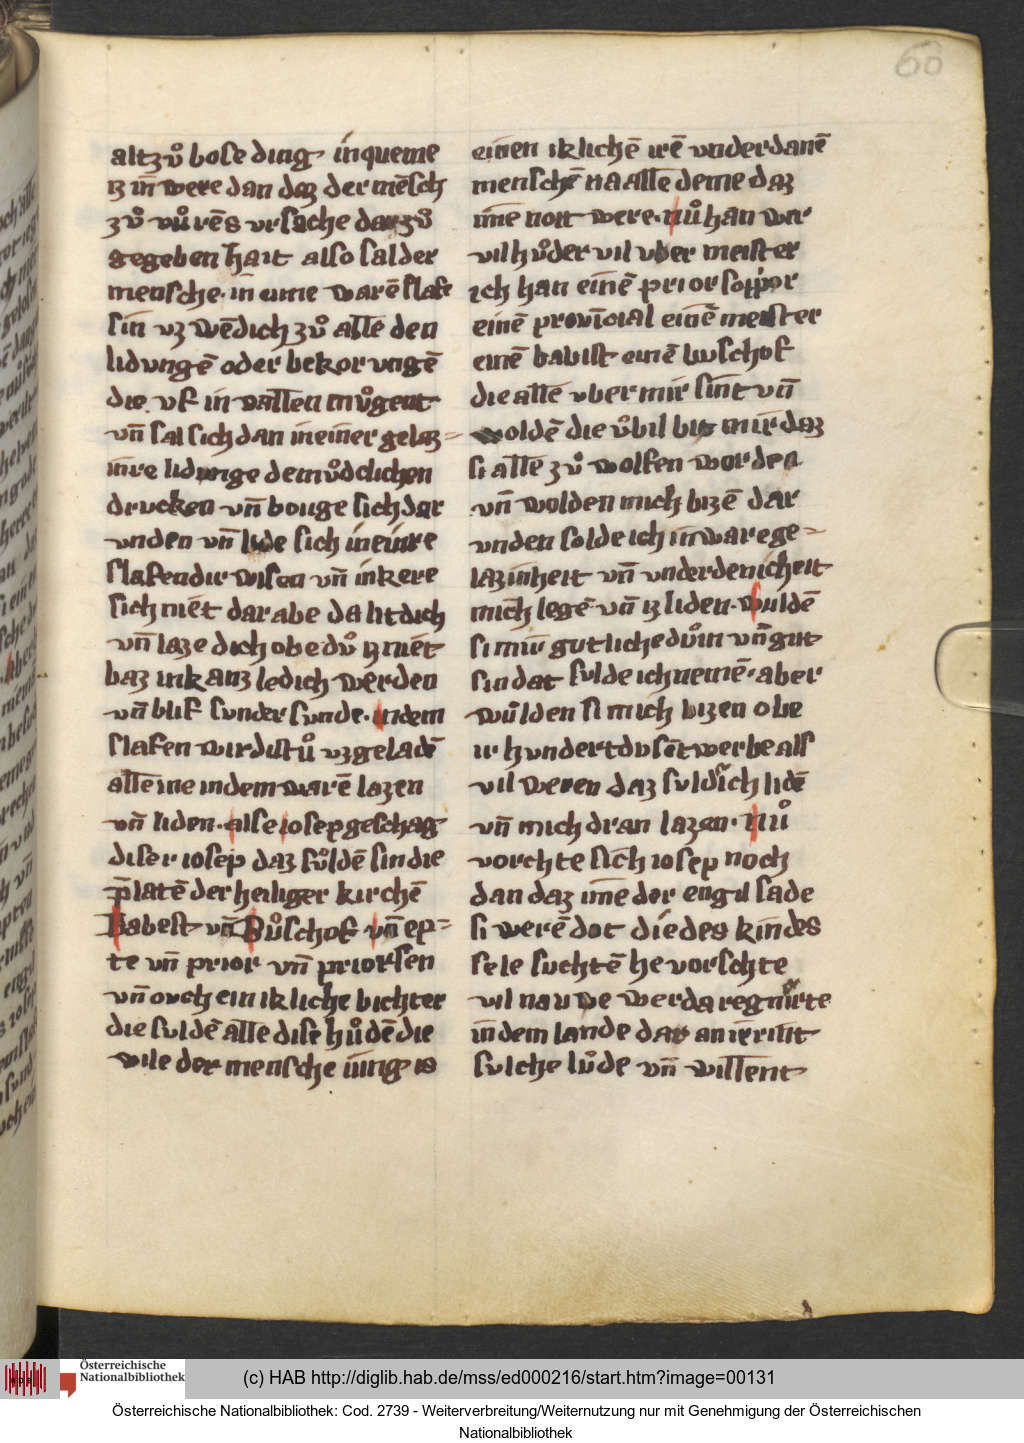 60
altzuͦ bose ding inqueme
iz in were dan daz der mēsch
zuͦ vuͦrēs vrsache darzuͦ
gegeben hait also sal der
mensche in eime warē slafe
sin vz wēdich zuͦ allē den
lidungē oder bekorungē
die vf in vallen muͦgent
vn̄ sal sich dan in einer gelaz=
inre lidunge demuͦdclichen
drucken vn̄ bouge sich dar
vnden vn̄ lide sich in einre
slafender wisen vn̄ inkere
sich niet dar abe da lit dich
vn̄ laze dich obe duͦ iz niet
baz in kanz ledich werden
vn̄ blif sunder sunde. indem
slafen wirdistuͦ vzgeladē
alleine indem warē lazen
vn̄ liden. alse iosep geschag
diser iosep daz suͦldē sin die
p̄latē der heiliger kirchē
Babest vn̄ Buͦschof vn̄ ep=
te vn̄ prior vn̄ priorsen
vn̄ ouch ein ikliche bichter
die suldē alle dise huͦdē die
wile der mensche iung is
einen iklichē irē vnderdanē
menschē na alle deme daz
ime nott were. nuͦ han wir
vil huͦder vil vber meister
ich han einē prior soppor
einē provīcial einē meister
einē babist einē biischof
die alle vber mir sint vn̄
woldē die uͦbil bit mir daz
si alle zuͦ wolfen worden
vn̄ wolden mich bizē dar
vnden solde ich in warege=
lazinheit vn̄ vnderdenicheit
mich legē vn̄ iz liden. wuldē
si mir gutliche duͦin vn̄ gut
sin dat sulde ich nemē. aber
wuͦlden si mich bizen obe
ir hundertdusēt werbe alse
vil weren daz suld ich lidē
vn̄ mich dran lazen. nuͦ
vorchte sich iosep noch
dan daz ime der engil sade
si werē dot die des kindes
sele suchtē he vorschte
vil nauwe wer da regnirte
in dem lande dar an ierint
sulche luͦde vn̄ willent
Österreichische
Nationalbibliothek
(c) HAB http://diglib.hab.de/mss/ed000216/start.htm?image=00131
Österreichische Nationalbibliothek: Cod. 2739 - Weiterverbreitung/Weiternutzung nur mit Genehmigung der Österreichischen
Nationalbibliothek